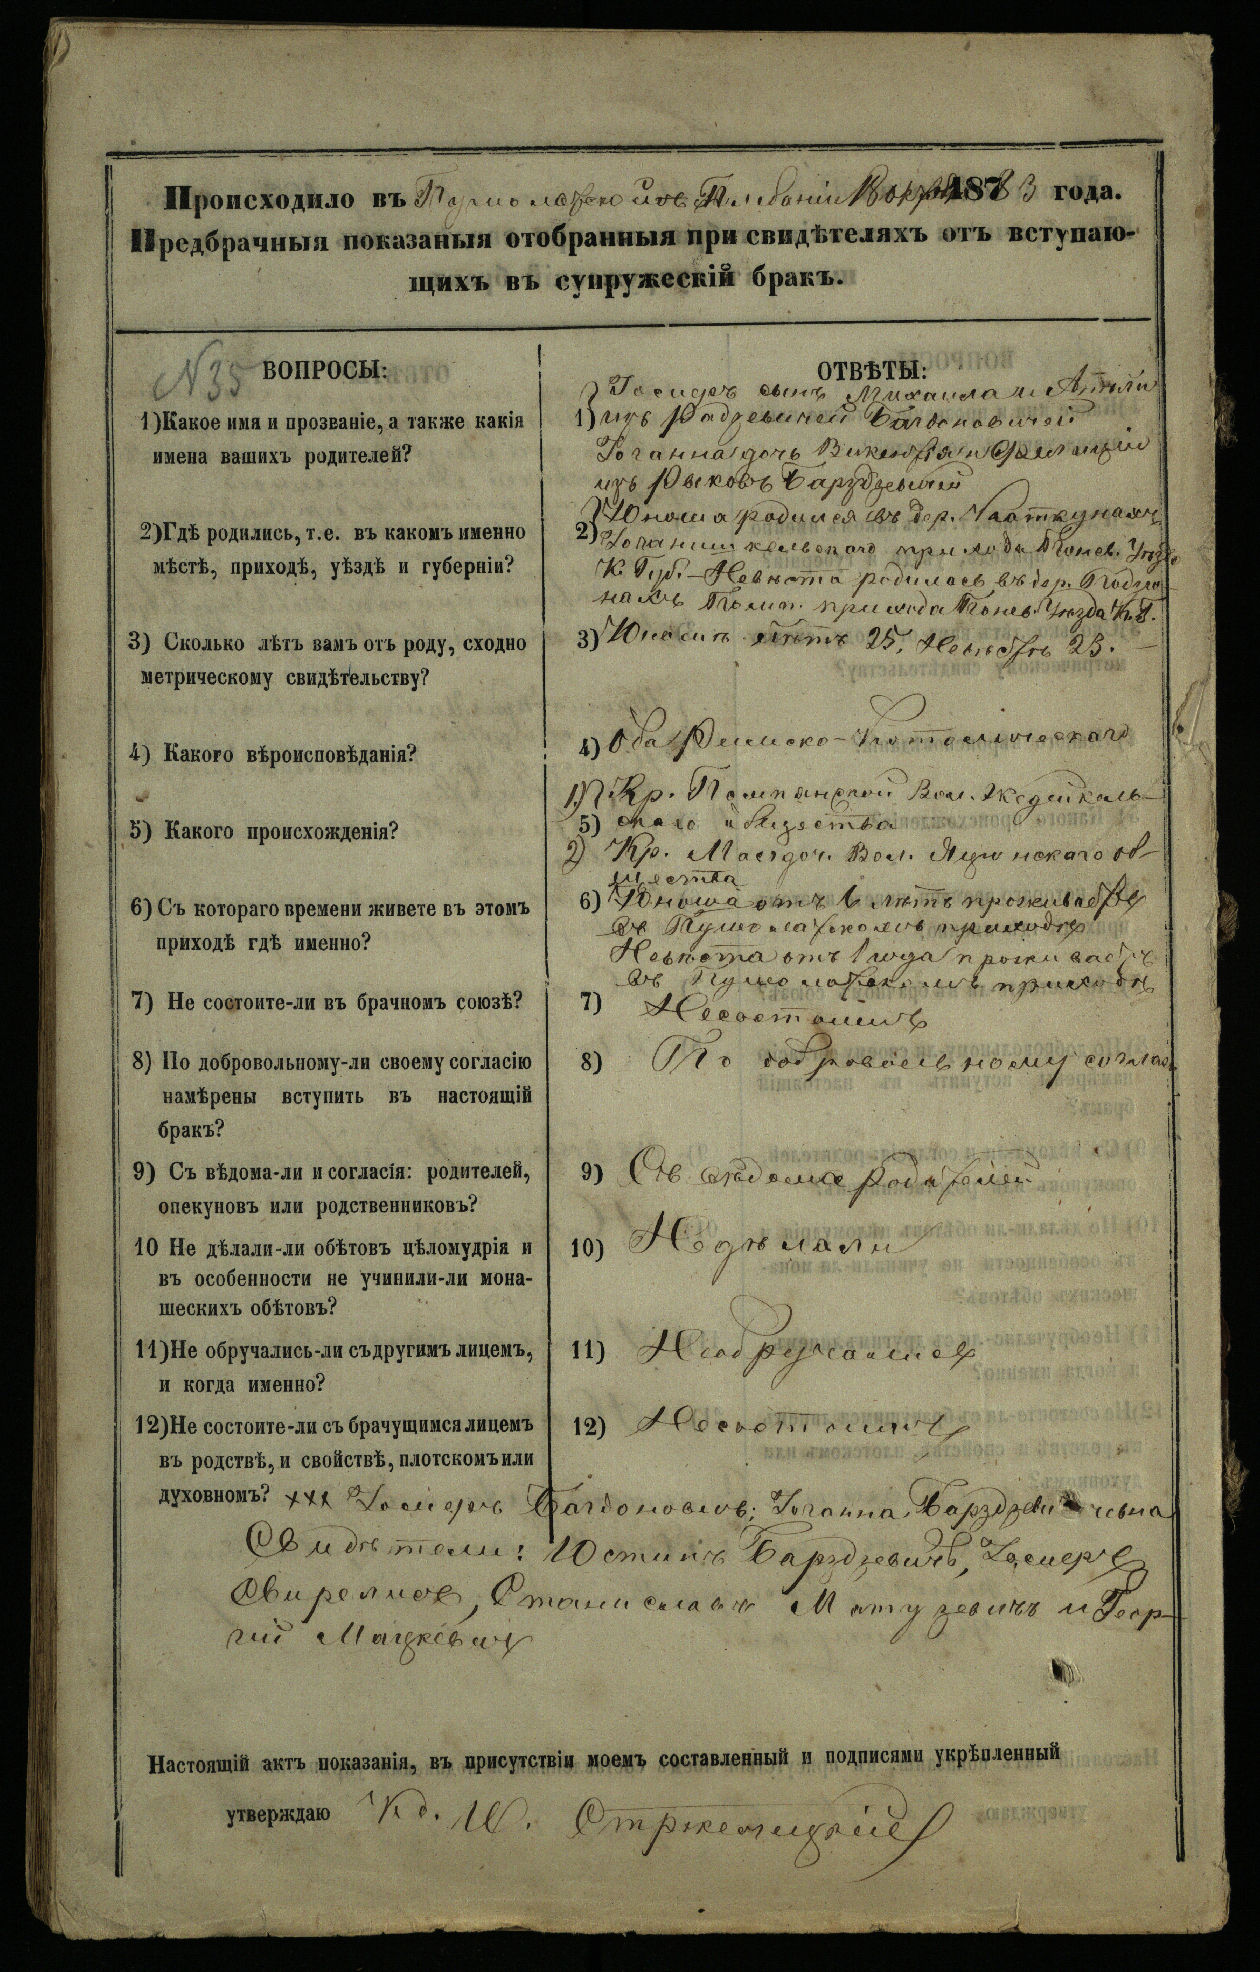 Происходило въ Плебаніи 1873 года.
Предбрачныя показаныя отобранныя при свидѣтеляхъ отъ вступаю-
щихъ въ супружескій бракъ.
N 35
ВОПРОСЫ:
1)Какое имя и прозваніе, а также какія
имена вашихъ родителей?
2)Гдѣ родились, т.е. въ какомъ именно
мѣстѣ, приходѣ, уѣздѣ и губерніи?
3) Сколько лѣтъ вамъ отъ роду, сходно
метрическому свидѣтельству?
4) Какого вѣроисповѣданія?
5) Какого происхожденія?
6) Съ котораго времени живете въ этомъ
приходѣ гдѣ именно?
7) Не состоите-ли въ брачномъ союзѣ?
8) По добровольному-ли своему согласію
намѣрены вступить въ настоящій
бракъ?
9) Съ вѣдома-ли и согласія: родителей,
опекуновъ или родственниковъ?
10 Не дѣлали-ли обѣтовъ цѣломудрія и
въ особенности не учинили-ли мона-
шескихъ обѣтовъ?
11)Не обручались-ли съ другимъ лицемъ,
и когда именно?
12)Не состоите-ли съ брачущимся лицемъ
въ родствѣ, и свойствѣ, плотскомъ или
духовномъ?
ОТВѢТЫ:
Іосифъ сынъ Михаила и
1) изъ Радзевичей Багдоновичей
Іоганна дочь Викентія и Фелиціи
изъ Рыковъ Барздзевичей
2) Юноша родился въ дер.
прихода Понев. Уѣзда
К. Губ. – Невѣста родилась въ дер.
прихода Понев. Уѣзда К. Г.
3) Юношѣ лѣтъ 25, Невѣстѣ 23. –
4) Оба Римско-Католическаго
1) Кр. Помпянской Вол.
5) скаго общества
2) Кр. Вол. об-
щества
6) Юноша отъ лѣтъ проживаетъ
въ приходѣ
Невѣста отъ 1 года проживаетъ
въ приходѣ
7) Несостоимъ
8) По добровольному соглас
9) Съ вѣдома родителей
10) Недѣлали
11) Необручались
12) Несостоимъ
ххх Іосифъ Багдоновичъ; Іоганна Барздзевичевна
Свидѣтели: Юстинъ Барздзевичъ, Іосифъ
Станиславъ Матузевичъ и Геор-
гій Мацкевичъ
Настоящій актъ показанія, въ присутствіи моемъ составленный и подписями укрѣпленный
утверждаю Кс.